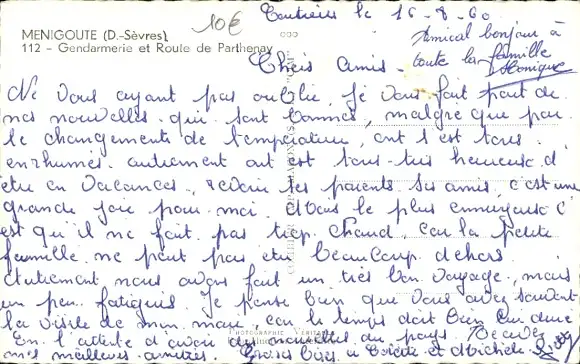 Coutières le 16-8-60
10€
MENIGOUTE (D.-Sèvres)
112 - Gendarmerie et Route de Parthenay
Amical bonjour à
toute la famille
Monique
Chers amis
Ne vous ayant pas oublié, je vous fait part de
nos nouvelles qui sont bonnes, malgré que par
le changements de température, ont s'est tous
enrhumés autrement ont est tous très heureuse d'
etre en vacances, revoir ses parents ses amis, c'est une
grande joie pour moi dous le plus ennuyeux c'
est qu'il ne fait pas trop chaud, car la petite
famille ne peut pas etre beaucoup dehors
Autrement nous avons fait un très bon voyage, mais
un peu fatigués. Je pense bien que vous avez souvent
la visite de mon mari, car le temps doit bien lui duré
En l'attente d'avoir des nouvelles du pays Recevez
mes meilleures amitiés. Grosses bises à et Michèle